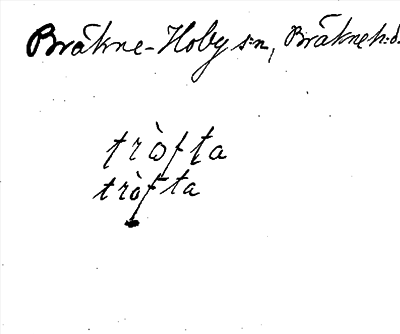 Bräkne-Hoby s:n, Bräkne h:d.
tròfta
tròfta